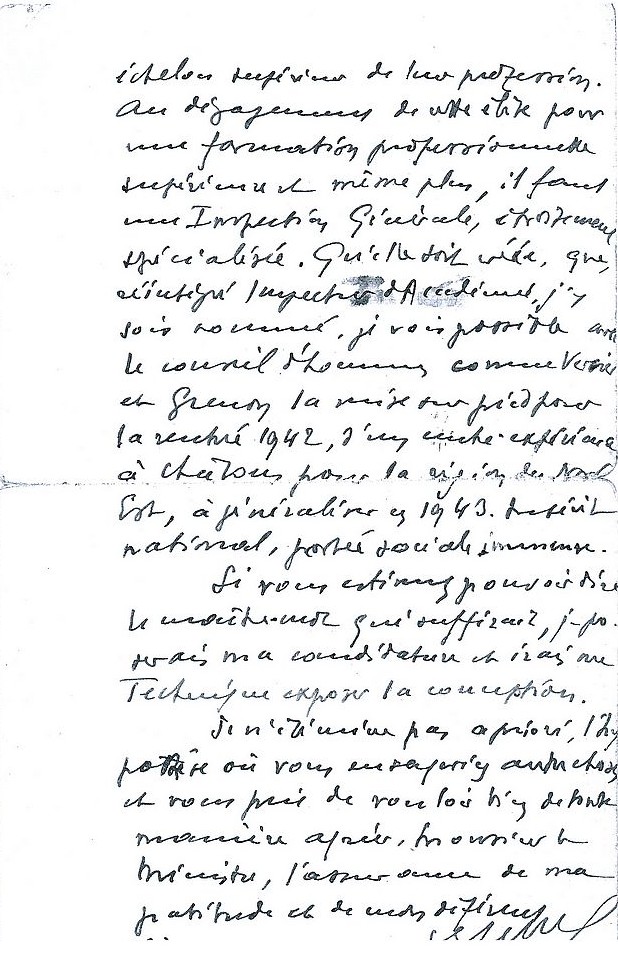 échelons supérieurs de leur profession.
Au dégagement de cette élite pour
une formation professionnelle
supérieure et même plus, il faut
une Inspection Générale, étroitement
spécialisée. Qu'elle soit créée, que,
réintégré Inspecteur d'Académie, j'y
sois nommé, je vois possible avec
le conseil d'hommes comme
et la mise sur pied pour
la rentrée 1942, d'un centre-expérience
à Châlons pour la région du Nord
Est, à généraliser en 1943. Intérêt
national, portée sociale immense.
Si vous estimez pouvoir dire
le maître-mot qui suffirait, je po-
serais ma candidature et irais rue
Technique exposer la conception.
Je n'élimine pas a priori, l'hy
pothèse où vous envisageriez autre chose
et vous prie de vouloir bien de toute
manière agréer, Monsieur le
Ministre, l'assurance de ma
gratitude et de mes déférents